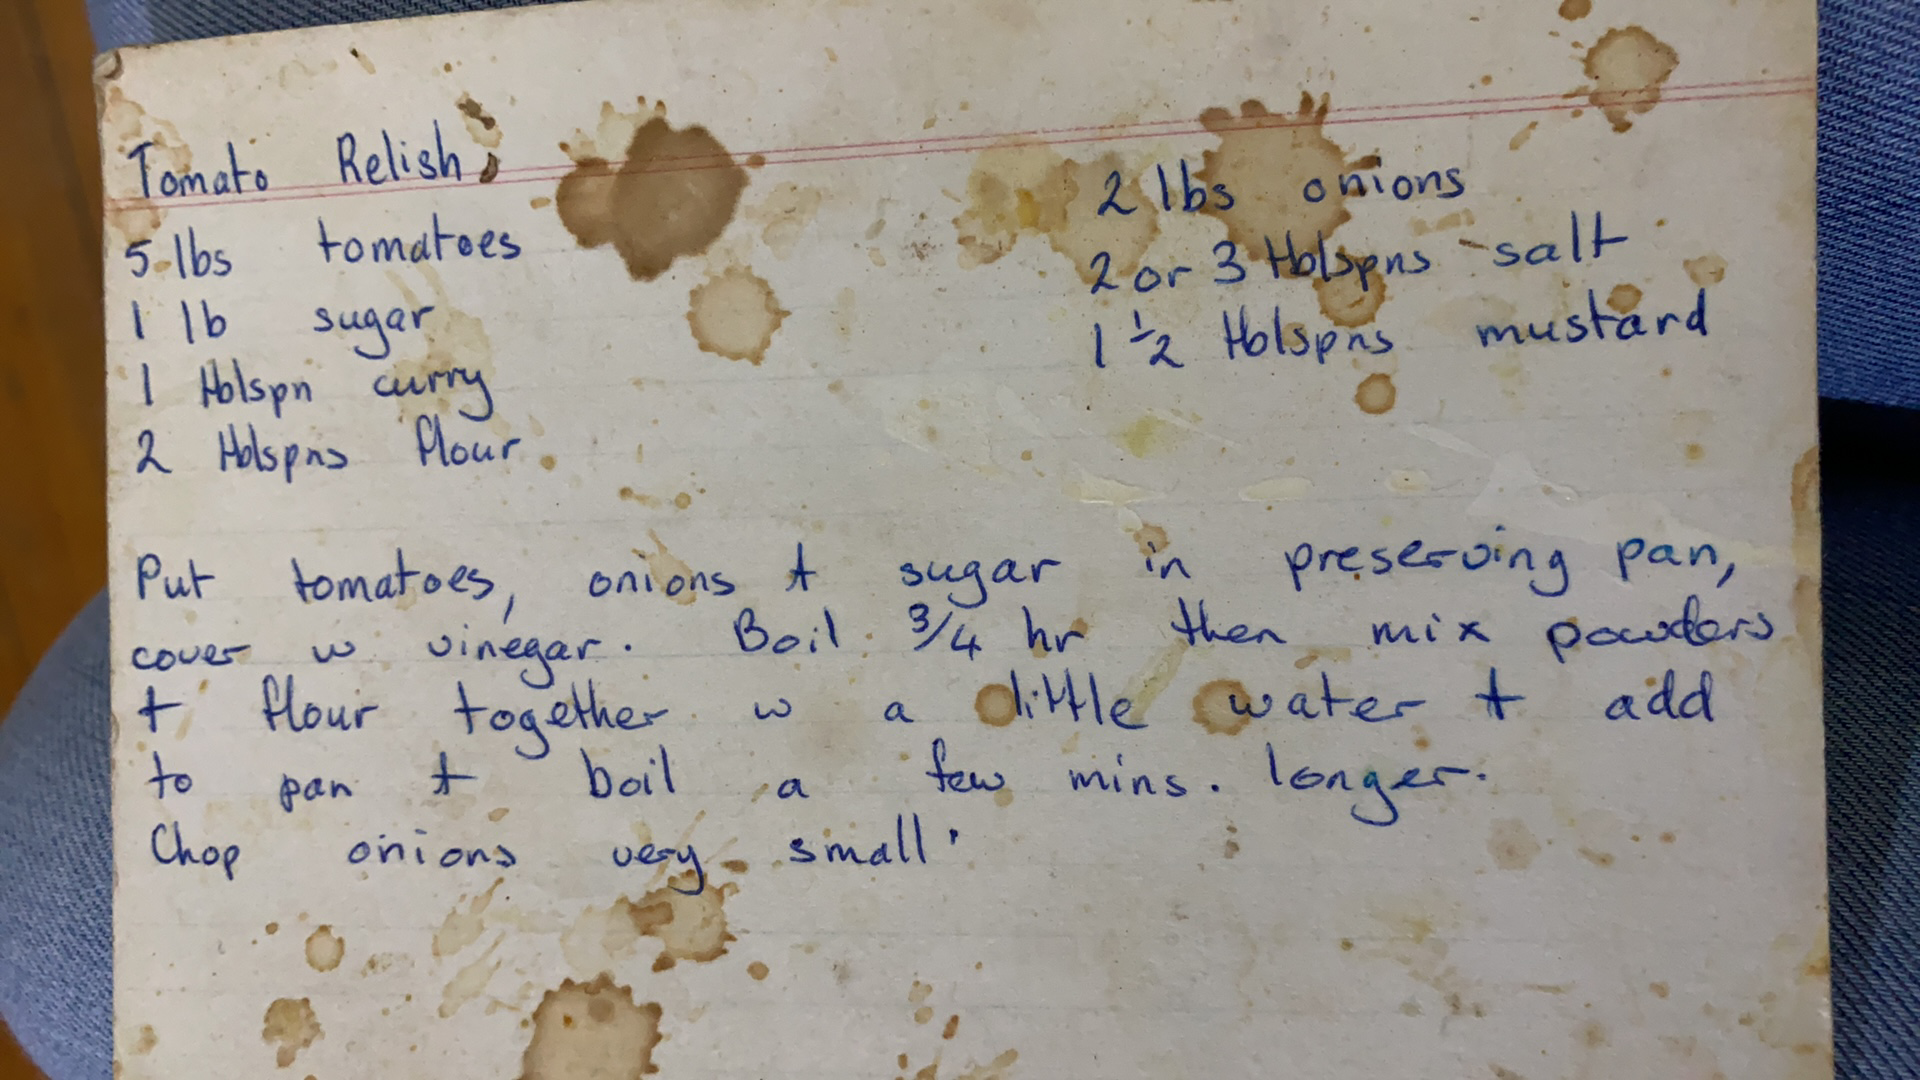 Tomato Relish
5 lbs tomatoes
1 lb sugar
1 tblspn curry
2 tblspns flour
2 lbs onions
2 or 3 tblspns salt
1 ½ tblspns mustard
Put tomatoes, onions + sugar in preserving pan,
cover w vinegar. Boil 3/4 hr then mix powders
+ flour together w a little water + add
to pan + boil a few mins. longer.
Chop onions very small.